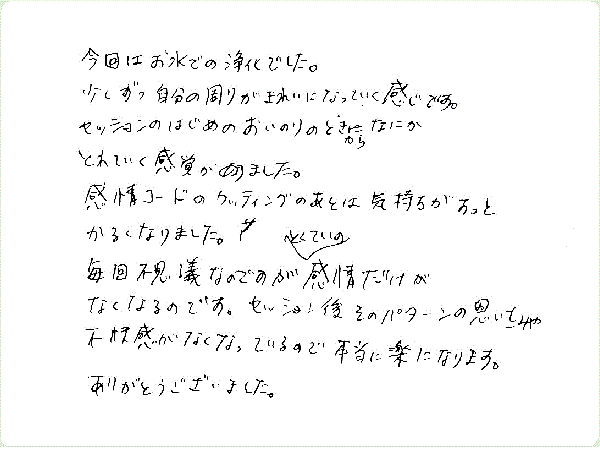 今回はお水での浄化でした。
少しずつ自分の周りがきれいになっていく感じです。
セッションのはじめのおいのりのときからなにか
とれていく感覚がありました。
感情コードのカッティングのあとは気持ちがすっと
かるくなりました。
とくていの
毎回不思議なのですが感情だけが
なくなるのです。セッション後そのパターンの思いこみや
不快感がなくなっているので本当に楽になります。
ありがとうございました。